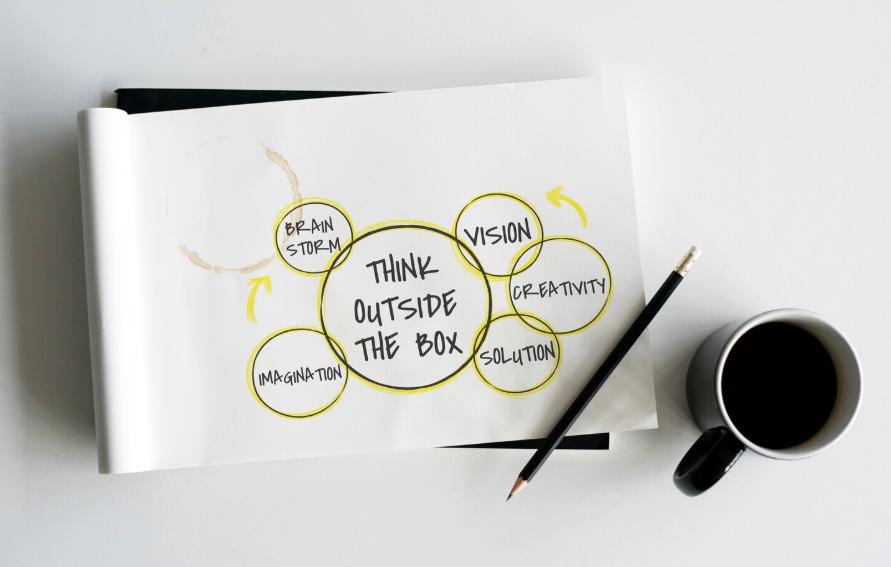 BRAIN
STORM
VISION
THINK
OUTSIDE
THE BOX
CREATIVITY
SOLUTION
IMAGINATION